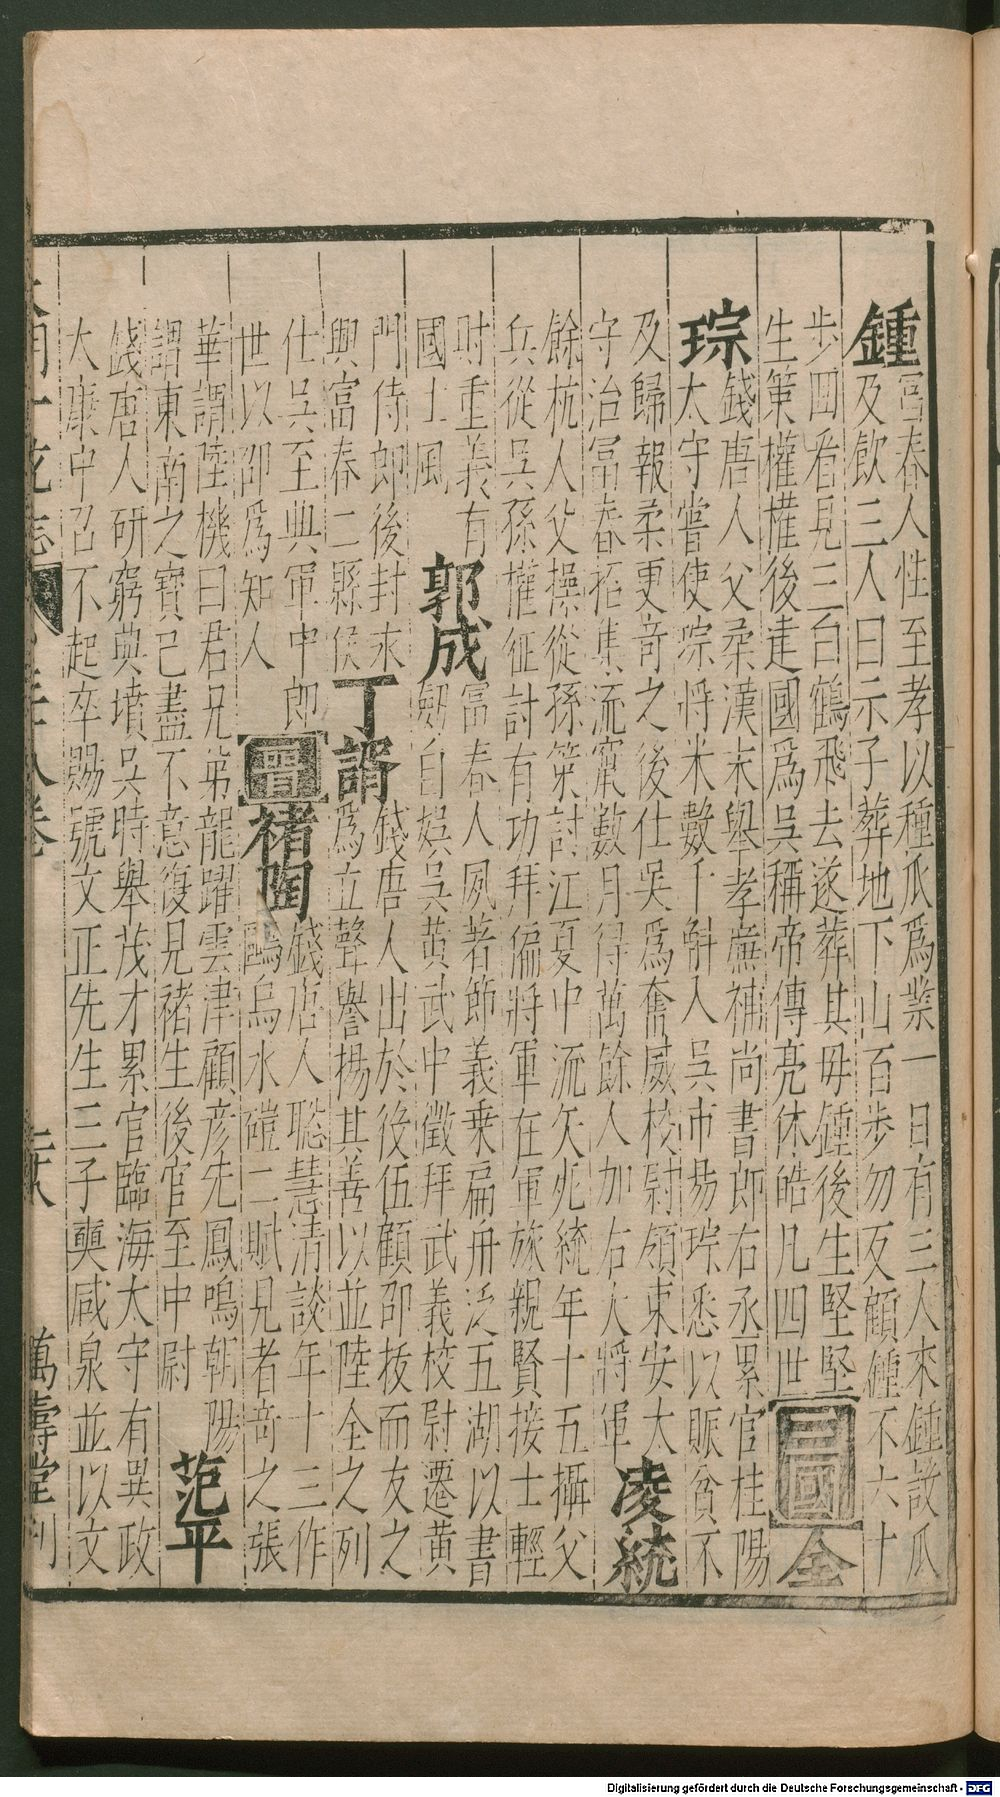 鍾富春人性至孝以種瓜爲業一日有三人來鍾設瓜
及飲三人曰示子葬地下山百步勿反顧鍾不六十
步回看見三白鶴飛去遂葬其母鍾後生堅堅
生策權權後建國爲吳稱帝傳亮休皓凡四世
三國全
琮錢唐人父柔漢末舉孝廉補尚書郎右丞累官桂陽
太守嘗使琮將米數千斛入吳市易琮悉以賑貧不
及歸報柔更奇之後仕吳爲奮威校尉領東安太
守治富春招集流寓數月得萬餘人加右大將軍
凌統
餘杭人父操從孫策討江夏中流矢死統年十五攝父
兵從吳孫權征討有功拜偏將軍在軍旅親賢接士輕
財重義有
國士風
郭成富春人夙著節義乗扁舟泛五湖以書
劔自娛吳黃武中徵拜武義校尉遷黃
門侍郎後封永
興富春二縣侯
丁諝錢唐人出於役伍顧邵拔而友之
爲立聲譽揚其善以並陸全之列
仕吳至典軍中郎
世以邵爲知人
晉褚陶錢唐人聡慧清談年十三作
鷗鳥水磑二賦見者奇之張
華謂陸機曰君兄弟龍躍雲津顧彥先鳳鳴朝陽
謂東南之寶已盡不意復見褚生後官至中尉
范平
錢唐人研窮典墳吳時舉茂才累官臨海太守有異政
大康中召不起卒賜號文正先生三子奭咸泉並以文
萬壽堂刊
Digitalisierung gefördert durch die Deutsche Forschungsgemeinschaft - DFG